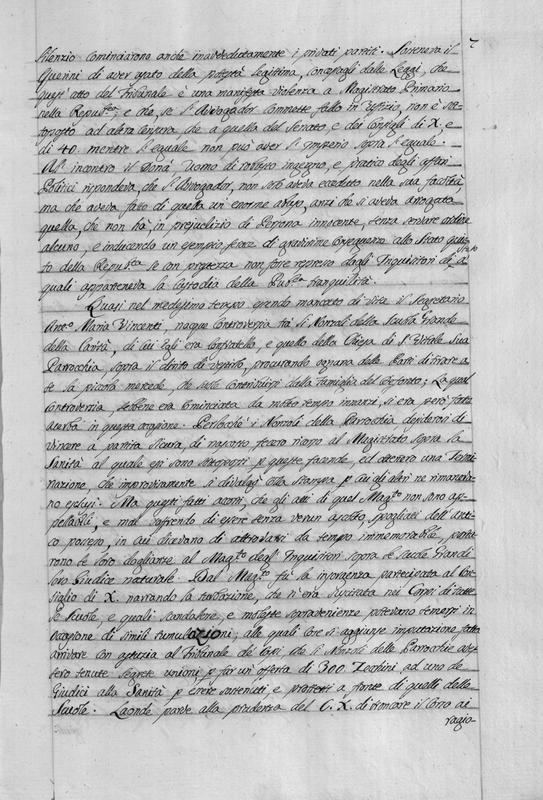 7
silenzio cominciarono anche inavvedutamente i privati partiti. Sosteneva il
Querini di aver usato della potestà legittima, concessagli dalle Leggi, che
quest'atto del Tribunale è una manifesta violenza a Magistrato Primario
nella Repub.ca; e che, se l'Avvogador commette fallo in Uffizio, non è sot-
toposto ad altra censura che a quella del Senato, e dei Consigli di X, e
di 40. mentre l'eguale non può aver l'imperio sopra l'eguale.
All'incontro il Donà Uomo di robusto ingegno, e pratico degli affari
Politici rispondeva, che l'Avvogador, non solo aveva ecceduto nella sua facoltà
ma che aveva fatto di quella un enorme abuso, anzi che si aveva arrogata
quella, che non hà, in pregiudizio di Persona innocente, senza servare ordine
alcuno, e inducendo un esempio feroce di gravissime conseguenze allo Stato quie-
to della Repub.ca se con prestezza non fosse represso dagli Inquisitori di Stato a
quali apparteneva la Custodia della Pub.ca tranquillità.
Quasi nel medesimo tempo essendo mancato di vita il Segretario
Ant.o Maria Vincenti, nacque controversia trà li Nonzoli della Scuola Grande
della Carità, di cui Egli era Confratello, e quello della Chiesa di S.
Parrocchia, sopra il diritto di vestirlo, procurando ognuna delle Parti di tirare a
se la piccola mercede, che suole contribuirsi dalla famiglia del Defonto; La qual
controversia, sebbene era cominciata da molto tempo innanzi, si era però fatta
acerba in questa occasione. Perlocchè i Nonzoli della Parrocchia desiderosi di
vincere a partita sicura, di nascosto fecero ricorso al Magistrato sopra la
Sanità al quale essi sono sottoposti p queste facende, ed ottennero una Termi-
nazione, che improvisamente si divulgò alla stampa p cui gli altri ne rimaneva-
no esclusi. Ma questi fatti accorti, che gli atti di quel Mag.to non sono ap-
pellabili, e mal soffrendo di essere senza verun ascolto, spogliati dell'anti-
co possesso, in cui dicevano di attrovarsi da tempo immemorabile, porta-
rono le loro doglianze al Mag.to degl'Inquisitori sopra le Scuole Grandi
loro Giudice naturale. Dal Mag.to fù la insorgenza partecipata al Con-
siglio di X. narrando la turbazione, che n'era suscitata nei Corpi di tutte
le Scuole, e quali scandalose, e moleste sopravenienze potevano temersi in
occasione di simili tumulazioni, alle quali cose si aggiunse imputazione fatta
arrivare con astuzia al Tribunale de Capi che li Nonzoli delle Parrochie aves-
sero tenute segrete unioni p far un'offerta di 300. Zecchini ad uno de
Giudici alla Sanità p essere sostenuti, e protetti a fronte di quelli delle
Scuole. Laonde parve alla prudenza del C. X. di troncare il corso ai
ragio-